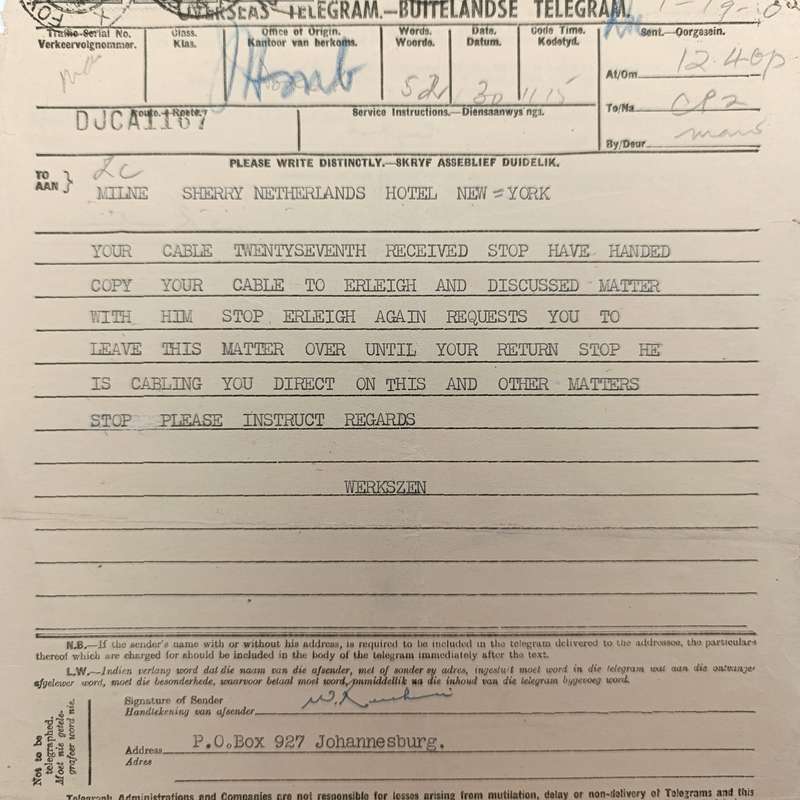 OVERSEAS TELEGRAM.—BUITELANDSE TELEGRAM.
Traffic Serial No.
Verkeervolgnommer.
Class.
Klas.
Office of Origin.
Kantoor van herkoms.
Words.
Woorde.
Date.
Datum.
Code Time.
Kodetyd.
Sent.—Oorgesein.
52
30
11 15
At/Om 12.40p
To/Na
By/Deur
DJCA1167
Route.—Roete.
Service Instructions.—Diensaanwysings.
PLEASE WRITE DISTINCTLY.—SKRYF ASSEBLIEF DUIDELIK.
TO
AAN
MILNE SHERRY NETHERLANDS HOTEL NEW=YORK
YOUR CABLE TWENTYSEVENTH RECEIVED STOP HAVE HANDED
COPY YOUR CABLE TO ERLEIGH AND DISCUSSED MATTER
WITH HIM STOP ERLEIGH AGAIN REQUESTS YOU TO
LEAVE THIS MATTER OVER UNTIL YOUR RETURN STOP HE
IS CABLING YOU DIRECT ON THIS AND OTHER MATTERS
STOP PLEASE INSTRUCT REGARDS
WERKSZEN
N.B.—If the sender's name with or without his address, is required to be included in the telegram delivered to the addressee, the particulars
thereof which are charged for should be included in the body of the telegram immediately after the text.
L.W.—Indien verlang word dat die naam van die afsender, met of sonder sy adres, ingesluit moet word in die telegram wat aan die ontvanger
afgelewer word, moet die besonderhede, waarvoor betaal moet word, onmiddellik na die inhoud van die telegram bygevoeg word.
Not to be
telegraphed.
Moet nie getele-
grafeer word nie.
Signature of Sender
Handtekening van afsender
Address P.O.Box 927 Johannesburg.
Adres
Telegraph Administrations and Companies are not responsible for losses arising from mutilation, delay or non-delivery of Telegrams and this